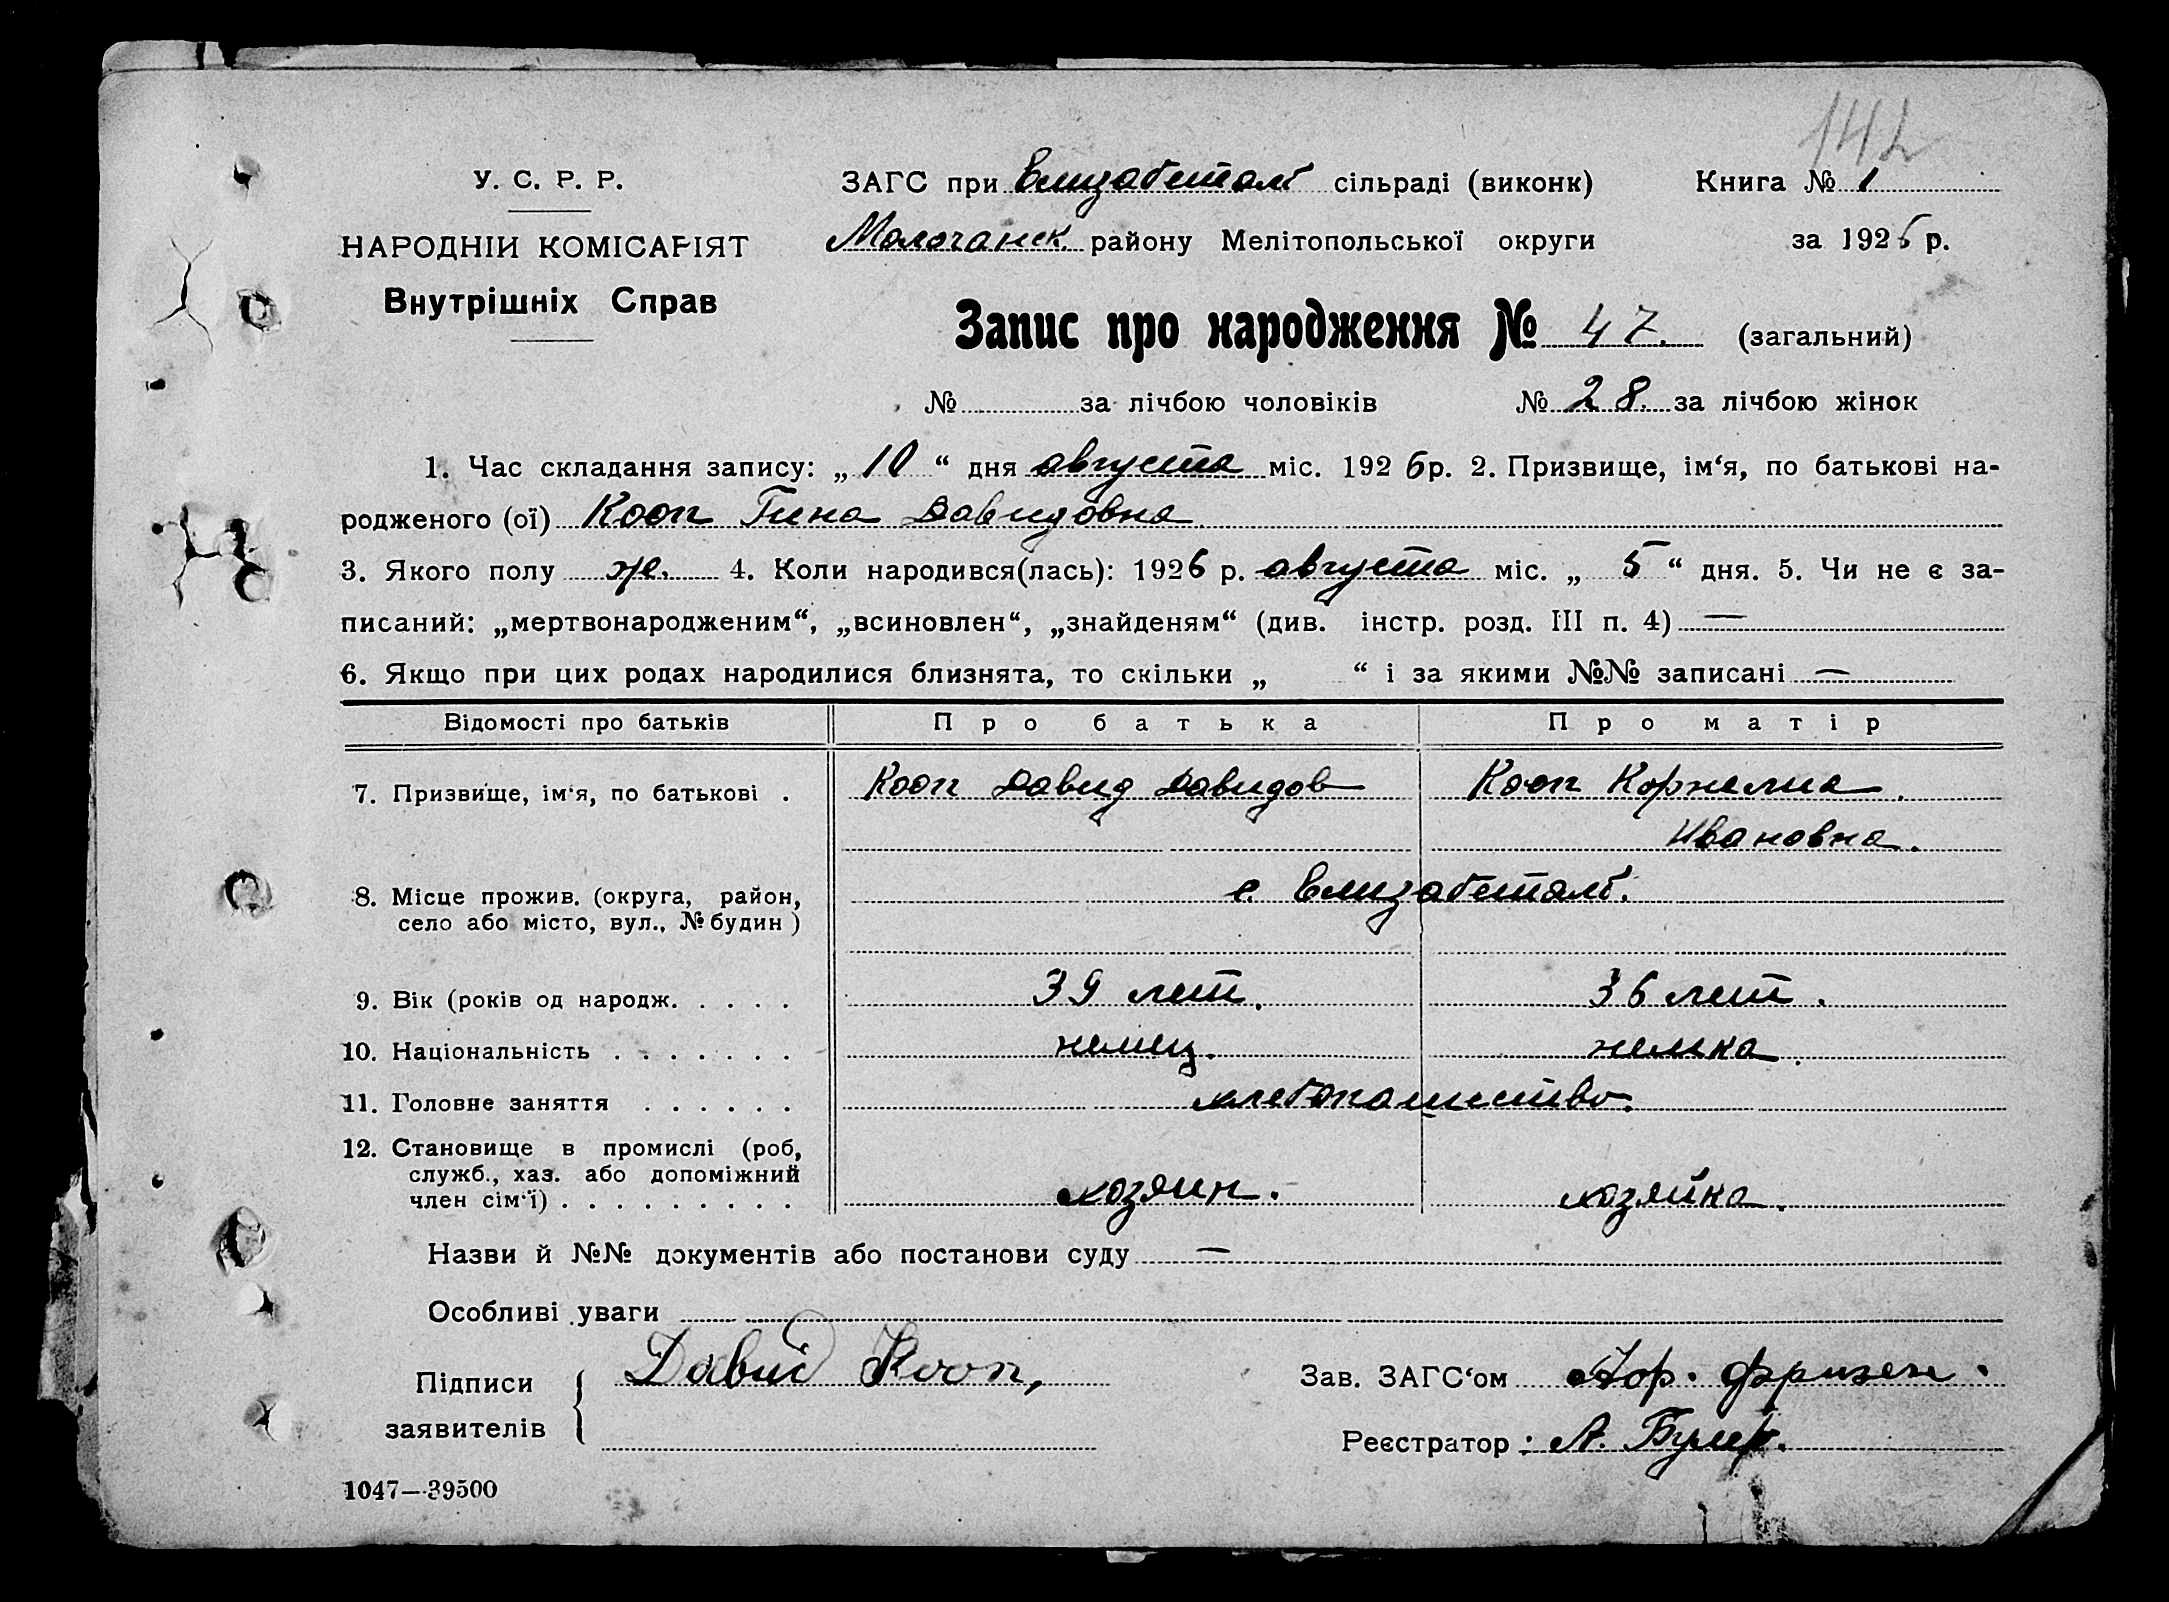 142
У. С. Р. Р.
НАРОДНІЙ КОМІСАРІЯТ
Внутрішніх Справ
ЗАГС при Елизабетал сільраді (виконк)
Книга № 1
Молочанск. району Мелітопольської округи
за 1926 р.
Запис про народження № 47. (загальний)
№ за лічбою чоловіків № 28. за лічбою жінок
1. Час складання запису: „10“ дня августа міс. 1926р. 2. Призвище, ім‘я, по батькові на-
родженого (ої) Кооп Тина Давидовна
3. Якого полу же. 4. Коли народився(лась): 1926 р. августа міс. „5“ дня. 5. Чи не є за-
писаний: „мертвонародженим“, „всиновлен“, „знайденям“ (див. інстр. розд. III п. 4) —
6. Якщо при цих родах народилися близнята, то скільки „ “ і за якими №№ записані —
Відомості про батьків Про батька Про матір
7. Призвище, ім‘я, по батькові . Кооп Давид Давидов Кооп Корнелия
Ивановна.
8. Місце прожив. (округа, район,
село або місто, вул., № будин ) с. Елизабетал.
9. Вік (років од народж. . . . . 39 лет. 36 лет.
10. Національність . . . . . . . немец. немка.
11. Головне заняття . . . . . . хлебопашество.
12. Становище в промислі (роб,
служб., хаз. або допоміжний
член сім‘ї) . . . . . . . . . хозяин. хозяйка.
Назви й №№ документів або постанови суду —
Особливі уваги
Підписи
заявителів
Давид Кооп,
Зав. ЗАГС‘ом Фризен.
Реєстратор: А.
1047—39500